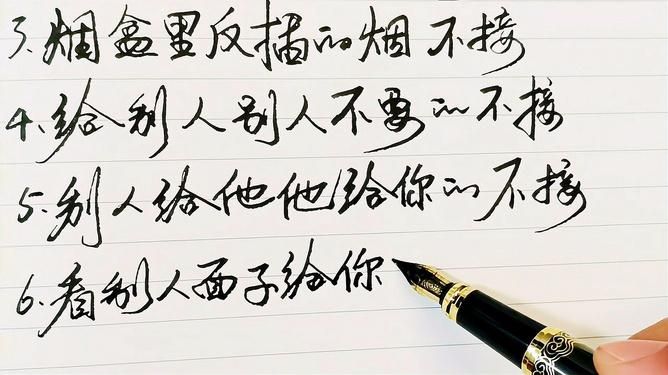 3.烟盒里反插的烟不接
4.给别人别人不要的不接
5.别人给他他给你的不接
6.看别人面子给你